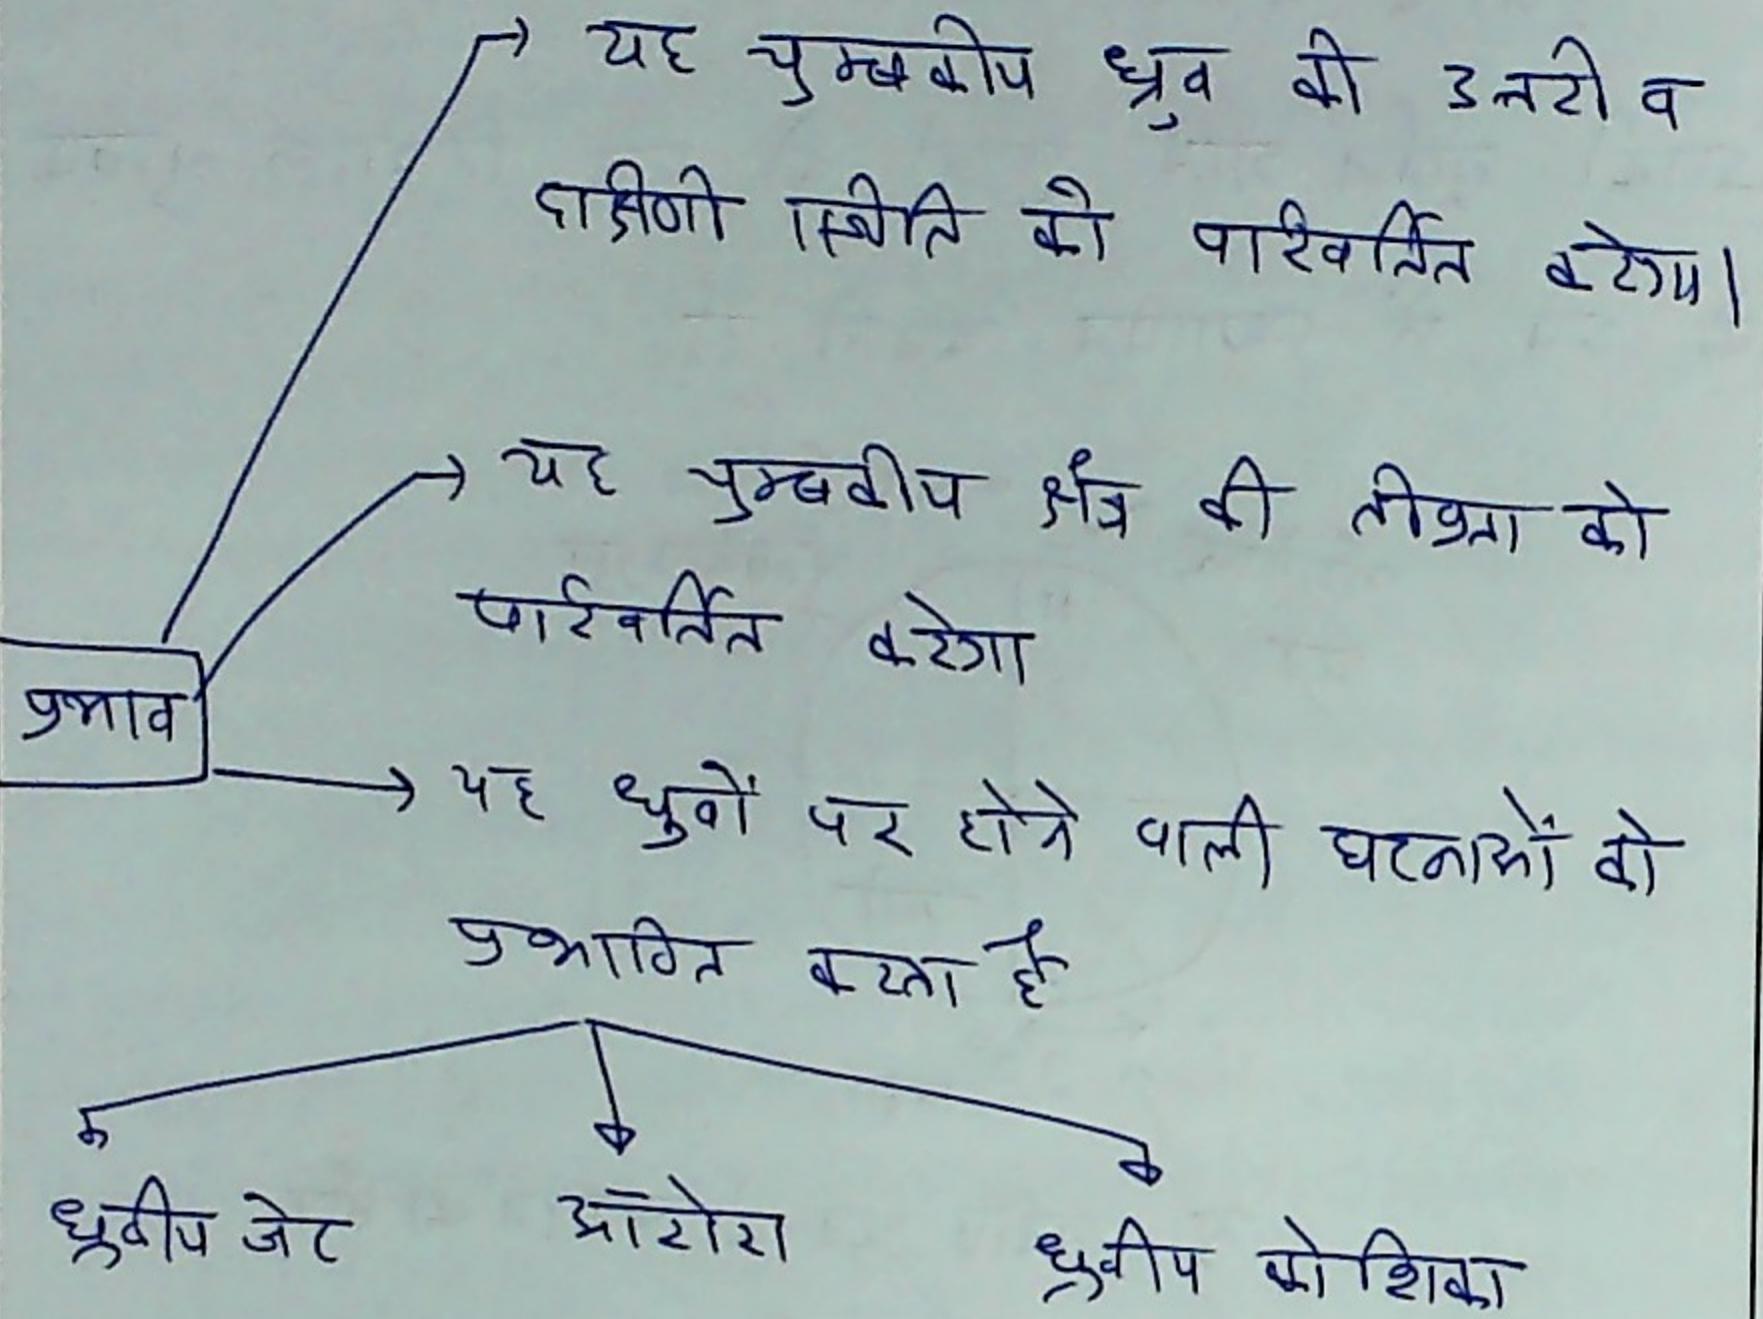 यह चुम्बकीय ध्रुव की उत्तरी व
दक्षिणी स्थिति को परिवर्तित करेगा।
यह चुम्बकीय क्षेत्र की तीव्रता को
परिवर्तित करेगा
प्रभाव
यह ध्रुवों पर होने वाली घटनाओं को
प्रभावित करता है
ध्रुवीय जेट ऑरोरा ध्रुवीय कोशिका